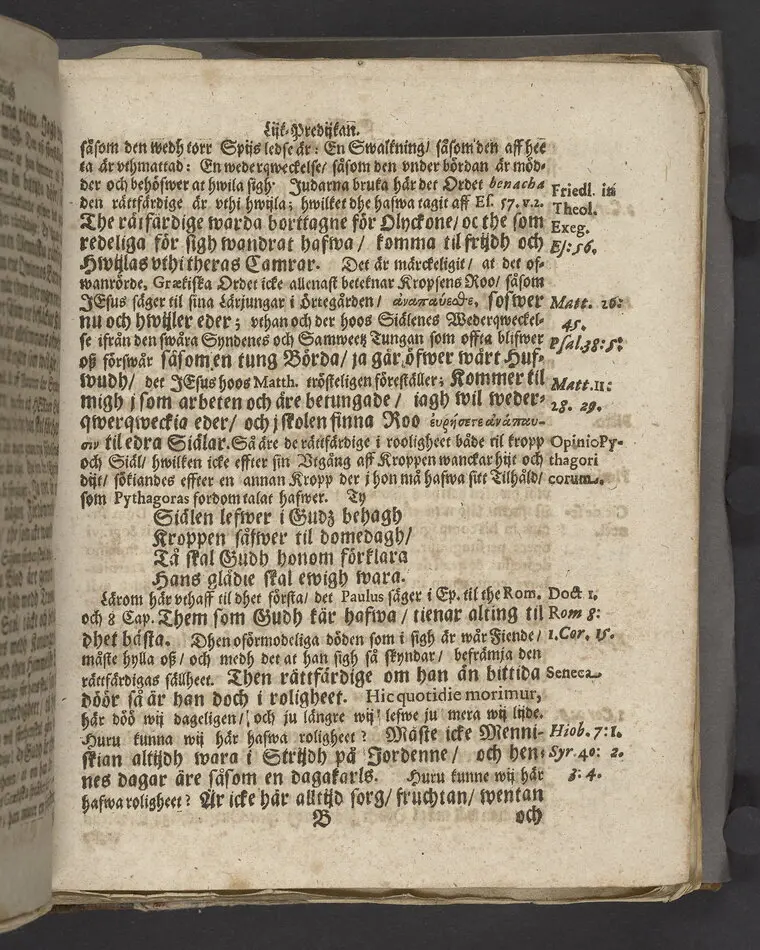 Lijk-Predijkan̄.
såsom den wedh torr Spijs ledse är: En Swalkning/ såsom den aff hee
ta är vthmattad: En wederqweckelse/ såsom den vnder bördan är möd-
der och behöfwer at hwila sigh. Judarna bruka här det Ordet benacha
den rättfärdige är vthi hwijla; hwilket dhe hafwa tagit aff Es. 57. v.2.
Friedl. in
Theol.
Exeg.
Es: 56.
The rättfärdige warda borttagne för Olyckone/ oc the som
redeliga för sigh wandrat hafwa/ komma til frijdh och
Hwijlas vthi theras Camrar. Det är märckeligit/ at det of-
wanrörde, Grækiska Ordet icke allenast beteknar Kropsens Roo/ såsom
JEsus säger til sina Lärjungar i Örtegården/ ἀναπαύεσθε, sofwer
nu och hwijler eder; vthan och der hoos Siälenes Wederqweckel-
Matt. 26:
45.
se ifrån den swåra Syndenes och Samwetz Tungan som offta blifwer
oß förswår såsom en tung Börda/ ja går öfwer wårt Huf-
Psal. 38: 5:
wudh/ det JEsus hoos Matth. trösteligen föreställer; Kommer til
migh j som arbeten och äre betungade/ iagh wil weder-
qwerqweckia eder/ och j skolen finna Roo ευρήσετε ἀνάπαυ-
Matt. 11:
28. 29.
σιν til edra Siälar. Så äre de rättfärdige i rooligheet både til kropp
och Siäl/ hwilken icke effter sin Vtgång aff Kroppen wanckar hijt och
dijt/ sökiandes effter en annan Kropp der j hon må hafwa sitt Tilhåld/
som Pythagoras fordom talat hafwer. Ty
Opinio Py-
thagori
corum.
Siälen lefwer i Gudz behagh
Kroppen såfwer til domedagh/
Tå skal Gudh honom förklara
Hans glädie skal ewigh wara.
Lärom här vthaff til dhet första/ det Paulus säger i Ep. til the Rom.
Doct 1.
och 8 Cap. Them som Gudh kär hafwa/ tienar alting til
Rom 8:
dhet bästa. Dhen oförmodeliga döden som i sigh är wår Fiende/
1. Cor. 15.
måste hylla oß/ och medh det at han sigh så skyndar/ befrämja den
rättfärdigas sällheet. Then rättfärdige om han än bittida
Seneca.
döör så är han doch i roligheet. Hic quotidie morimur,
här döö wij dageligen/ och ju längre wij lefwe ju mera wij lijde.
Huru kunna wij här hafwa roligheet? Måste icke Menni-
Hiob. 7: 1.
skian altijdh wara i Strijdh på Jordenne/ och hen-
Syr. 40: 2.
nes dagar äre såsom en dagakarls. Huru kunne wij här
3: 4.
hafwa roligheet? Är icke här alltijd sorg/ fruchtan/ wentan
B och